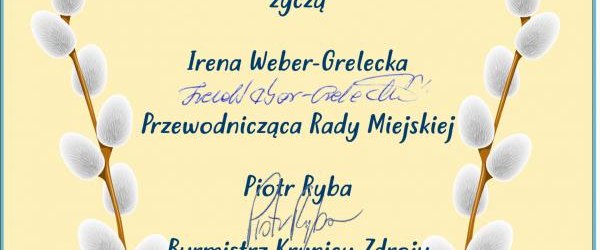 życzą
Irena Weber-Grelecka
Irena Weber-Grelecka
Przewodnicząca Rady Miejskiej
Piotr Ryba
Piotr Ryba
Burmistrz Krynicy-Zdroju